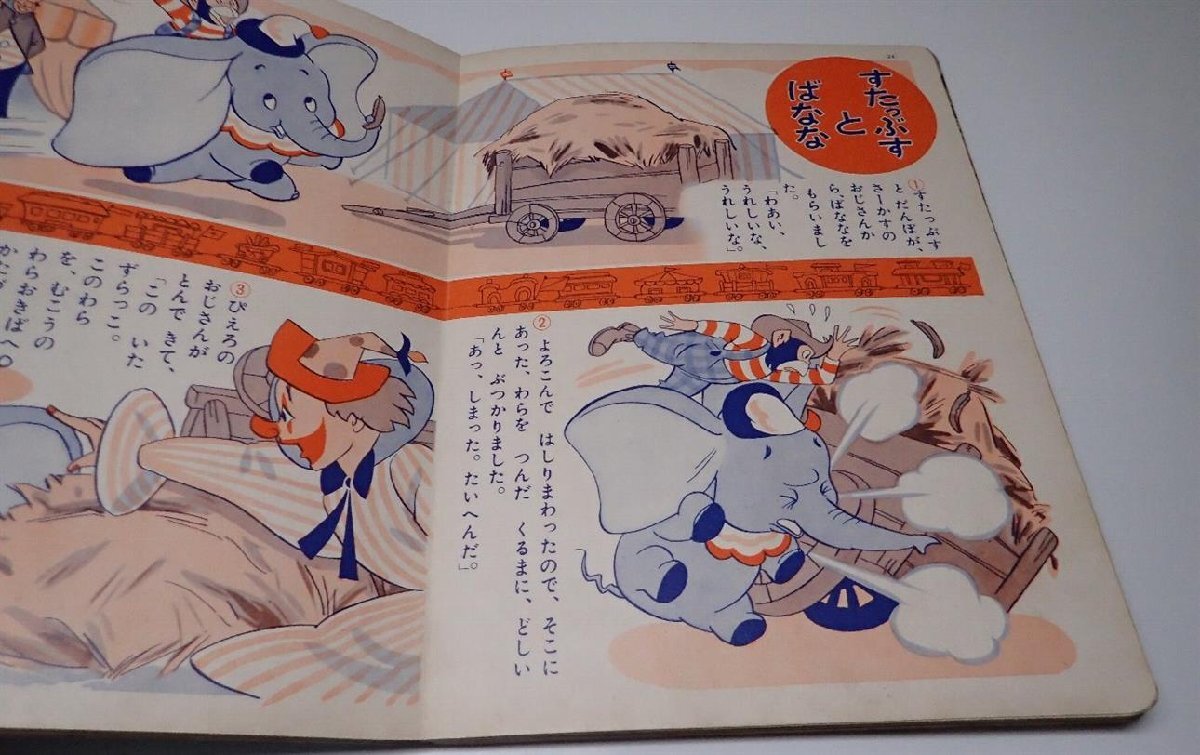 24
すたっぷす
と
ばなな
①すたっぷす
とだんぼが、
さーかすの
おじさんか
ら、ばななを
もらいまし
た。
「わあい、
うれしいな、
うれしいな。」
② よろこんで はしりまわったので、そこに
あった、わらを つんだ くるまに、どしい
んと ぶつかりました。
「あっ、しまった。たいへんだ」。
③ ぴえろの
おじさんが
とんで きて、
「この いた
ずらっこ。
このわら
を、むこうの
わらおきばへ